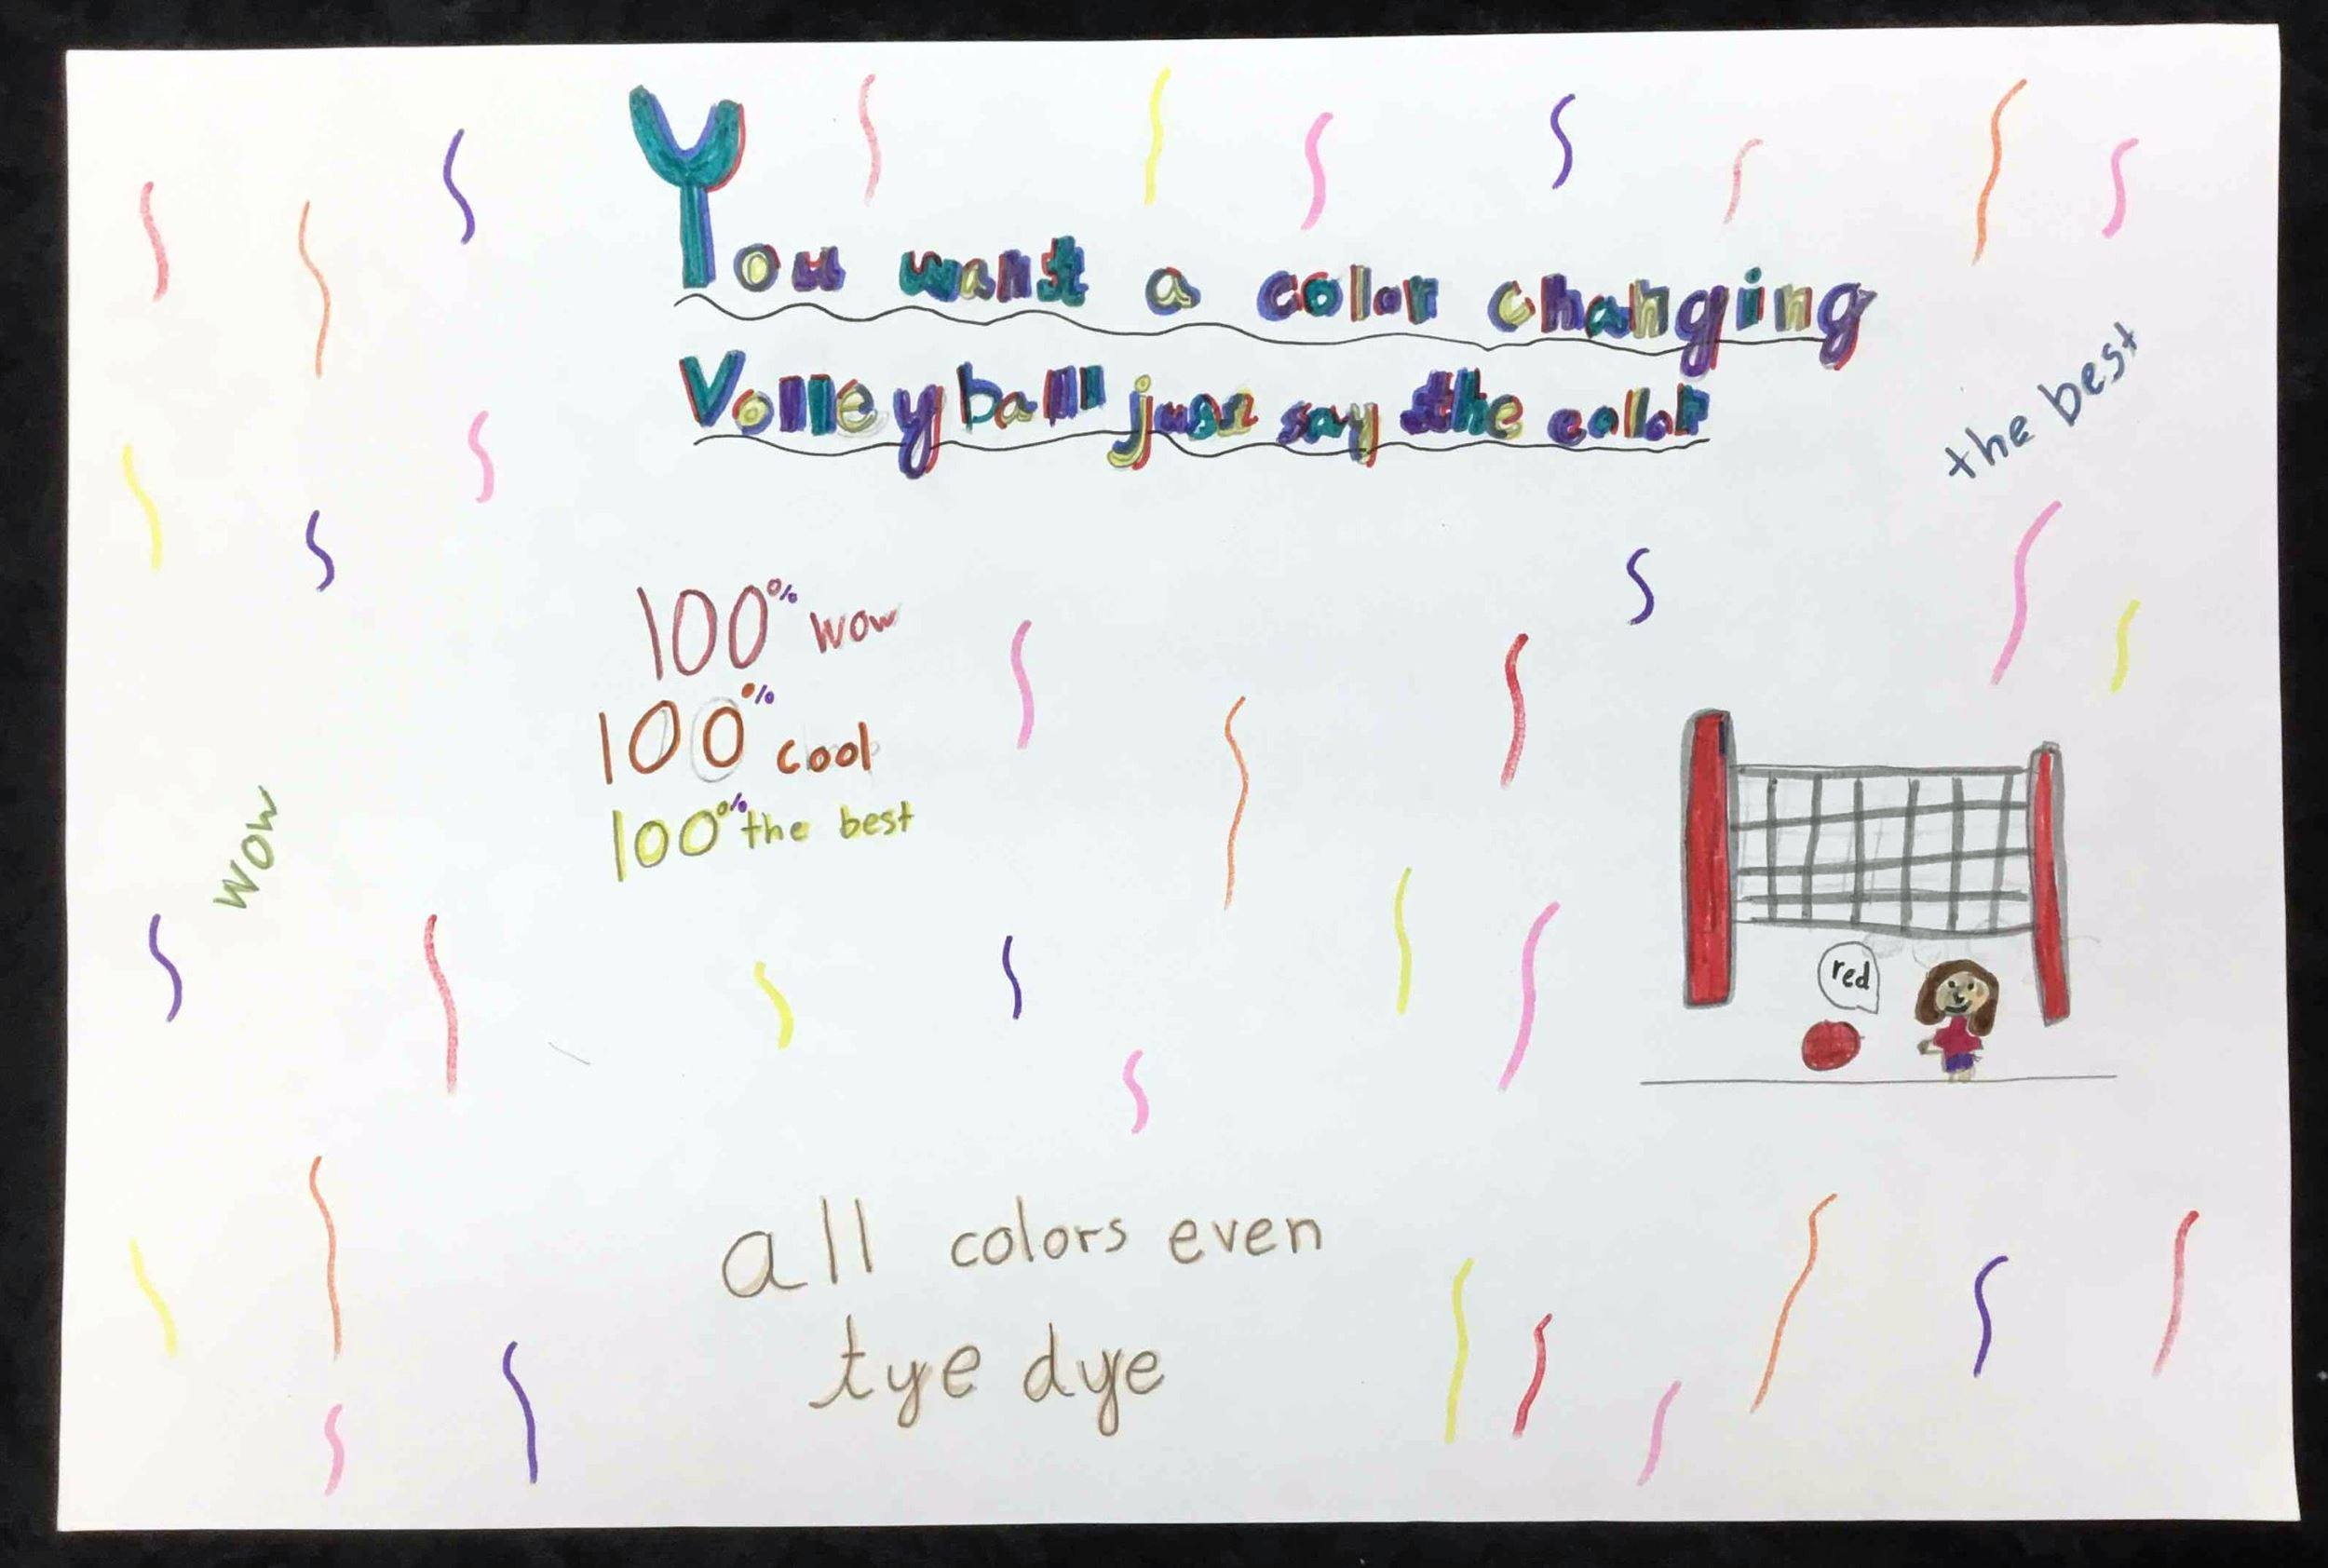 You want a color changing
Volleyball just say the color
the best
100% wow
100% cool
100% the best
wow
red
all colors even
tye dye